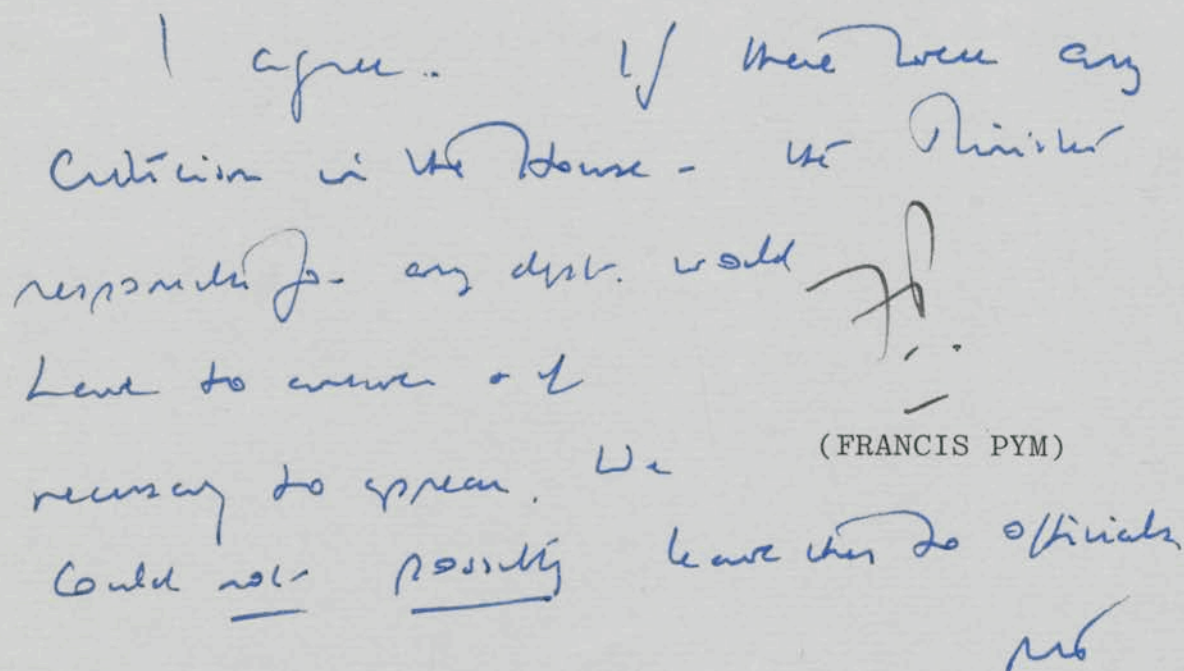 I agree. If there were any
criticism in the House - the Minister
responsible for any dept. would
have to answer & if
necessary to appear. We
could not possibly leave this to officials
MT
FP.
(FRANCIS PYM)